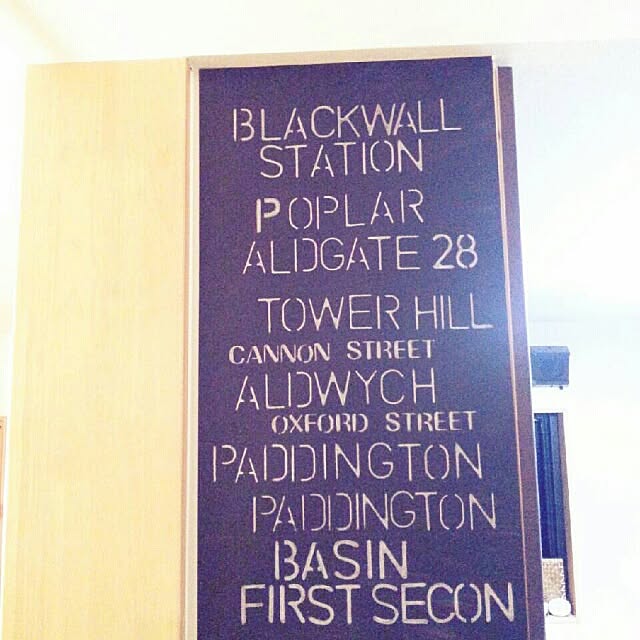 BLACKWALL
STATION
POPLAR
ALIDGATE 28
TOWER HILL
CANNON STREET
ALDWYCH
OXFORD STREET
PADDINGTON
PADDINGTON
BASIN
FIRST SECON